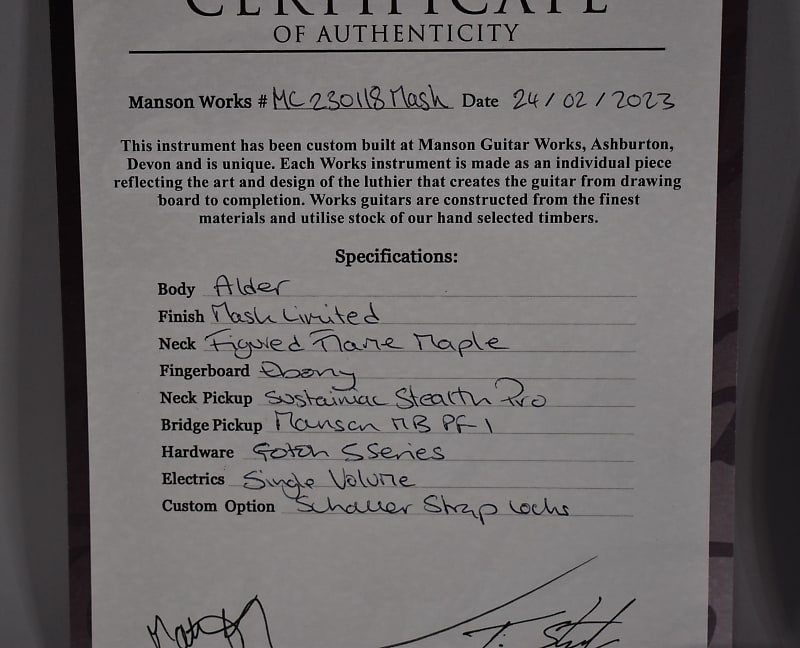 CERTIFICATE
OF AUTHENTICITY
Manson Works # MC230118Mash Date 24/02/2023
This instrument has been custom built at Manson Guitar Works, Ashburton,
Devon and is unique. Each Works instrument is made as an individual piece
reflecting the art and design of the luthier that creates the guitar from drawing
board to completion. Works guitars are constructed from the finest
materials and utilise stock of our hand selected timbers.
Specifications:
Body Alder
Finish Mash Limited
Neck Figured Flame Maple
Fingerboard Ebony
Neck Pickup Sustainiac Stealth Pro
Bridge Pickup Manson MB PF-1
Hardware Gotoh S Series
Electrics Single Volume
Custom Option Schaller Strap Locks